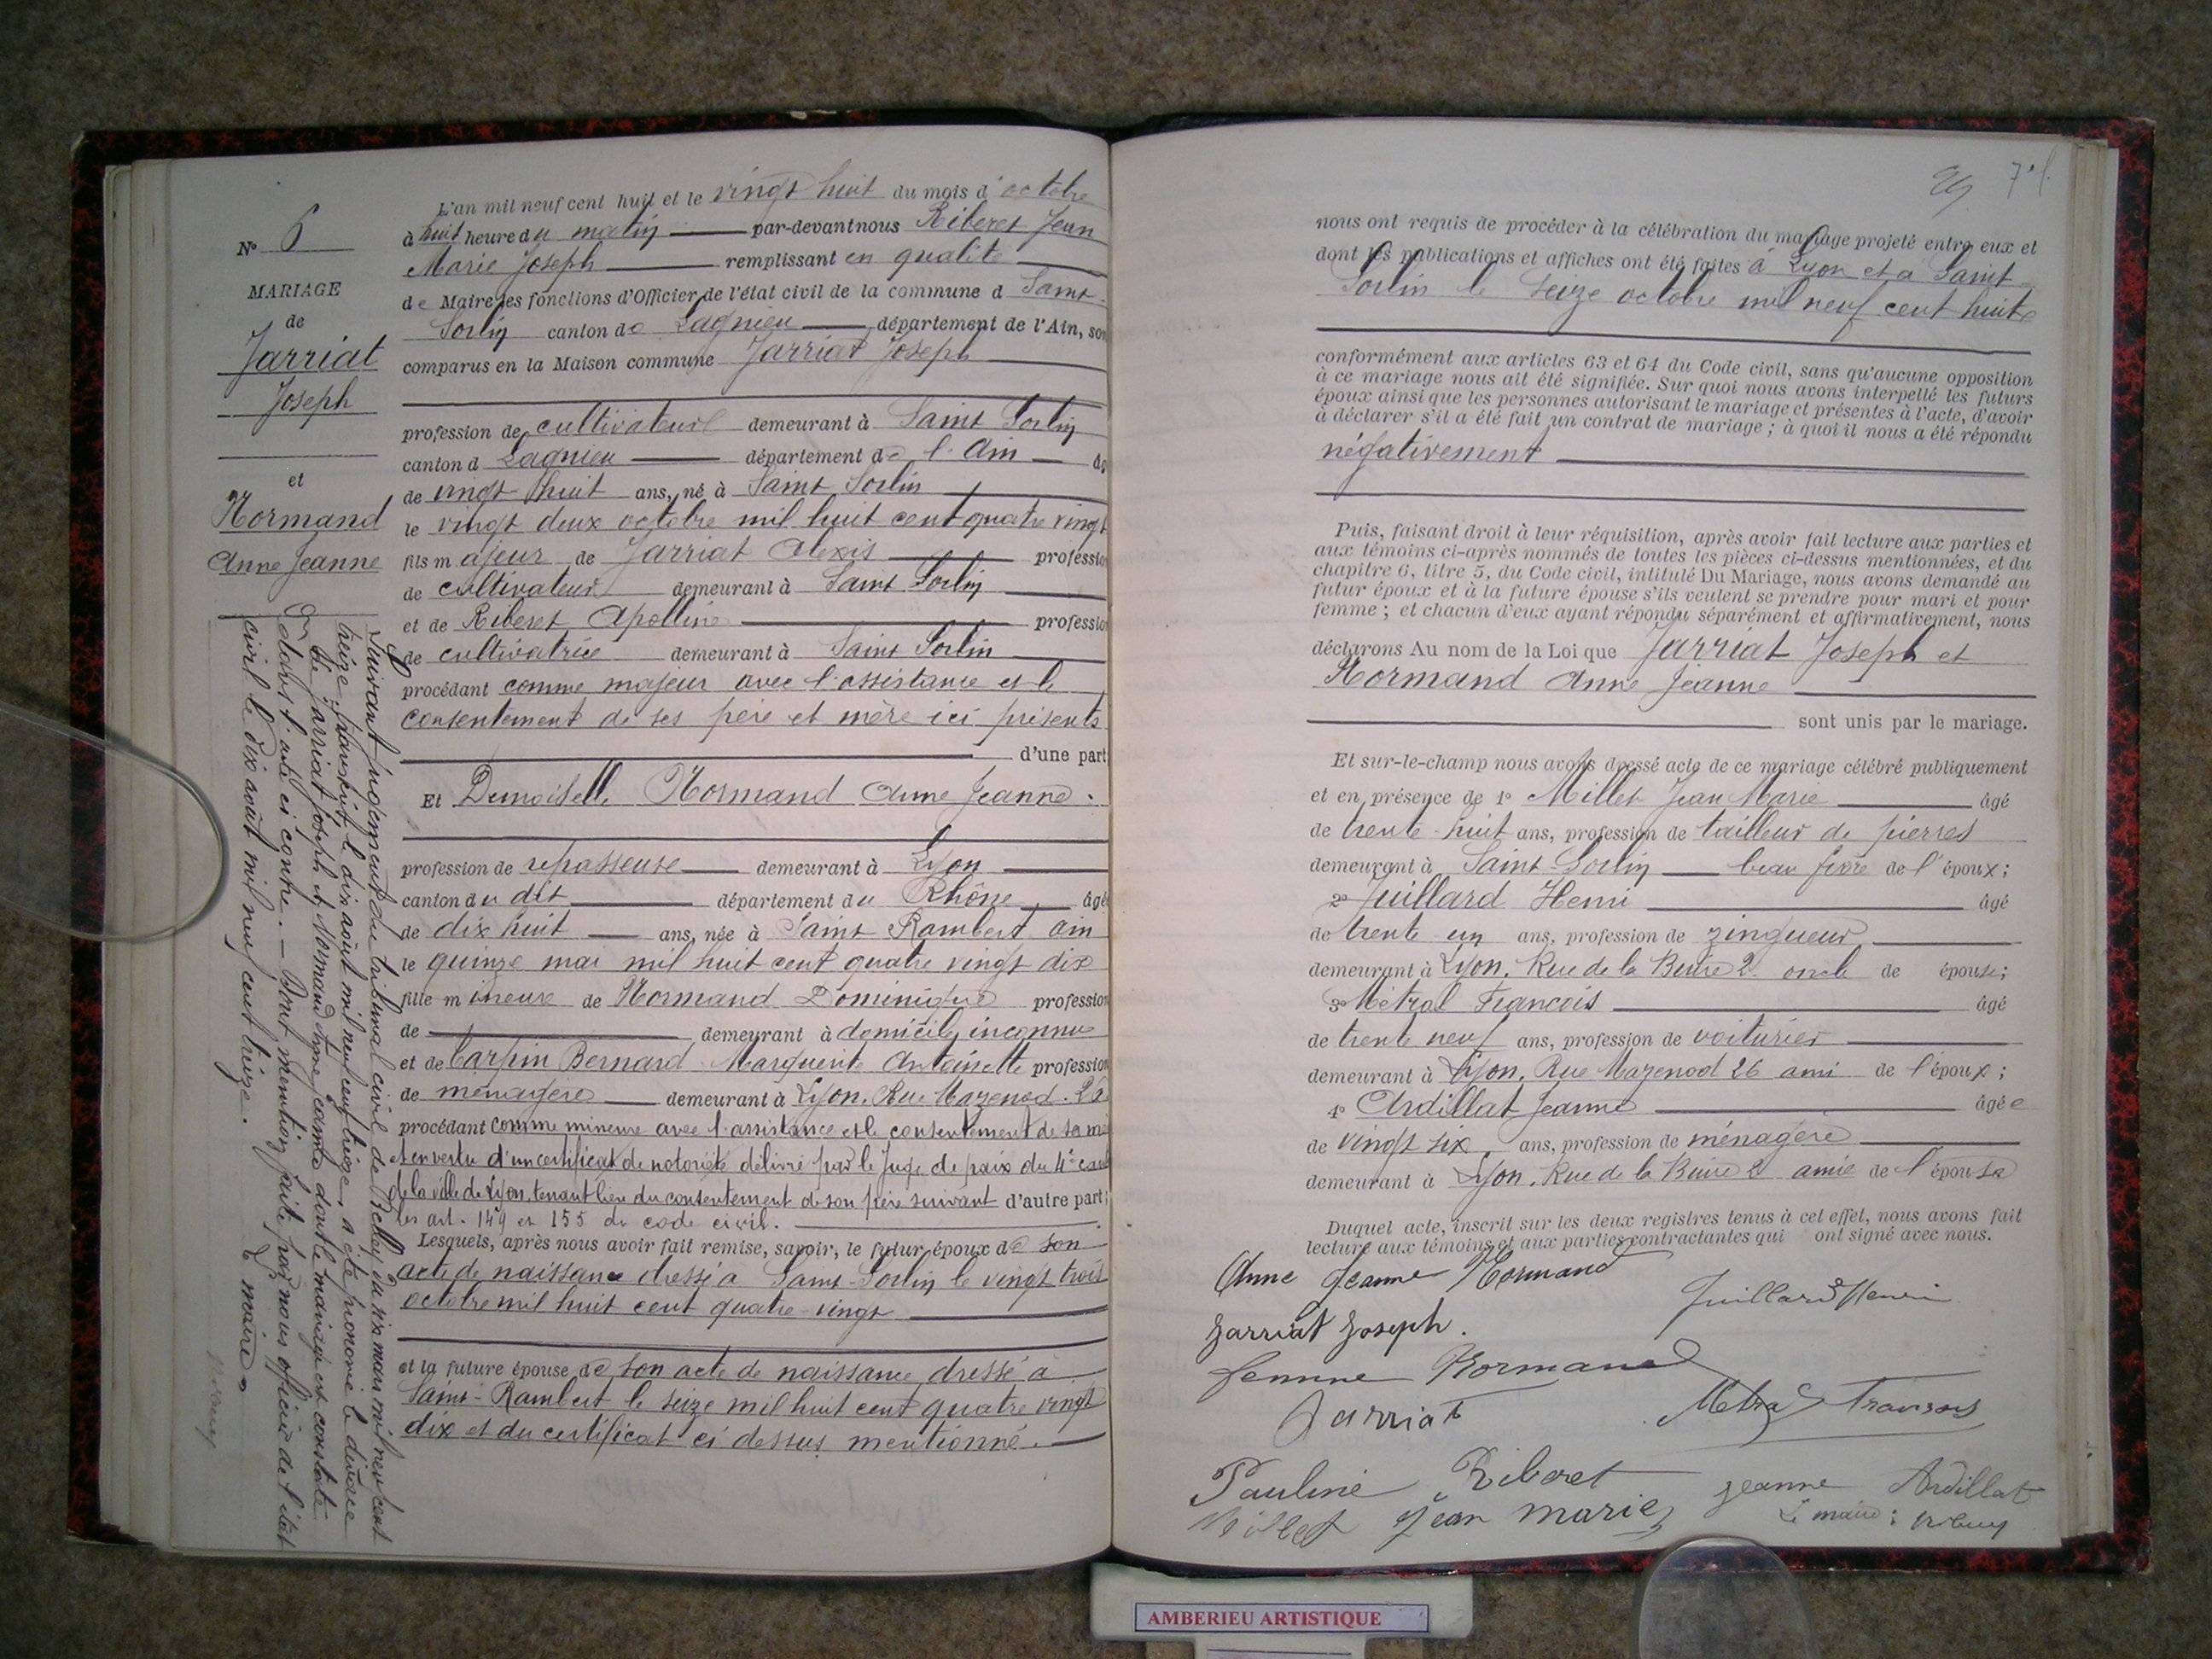 N° 6
MARIAGE
de
Jarriat
Joseph
et
Normand
Anne Jeanne
Suivant jugement du tribunal civil de Belley du six mars mil neuf cent
treize, transcrit le dix août mil neuf cent treize, a été prononcé le divorce
de Jarriat Joseph et Normand Anne Jeanne dont le mariage est constaté
dans l'acte ci contre. — Dont mention faite par nous officier de l'état
civil le dix août mil neuf cent treize.
Le maire.
L'an mil neuf cent huit et le vingt huit du mois d'octobre
à huit heure du matin par-devant nous Riberet Jean
Marie Joseph remplissant en qualité
de Maire les fonctions d'Officier de l'état civil de la commune d Saint-
Sorlin canton de Lagnieu département de l'Ain, son
comparus en la Maison commune Jarriat Joseph
profession de cultivateur demeurant à Saint Sorlin
canton d Lagnieu département de l'Ain âg
de vingt huit ans, né à Saint Sorlin
le vingt deux octobre mil huit cent quatre vingt
fils majeur de Jarriat Alexis professio
de cultivateur demeurant à Saint Sorlin
et de Riberet Apolline professio
de cultivatrice demeurant à Saint Sorlin
procédant comme majeur avec l'assistance et le
consentement de ses père et mère ici présents
d'une part
Et Demoiselle Normand Anne Jeanne.
profession de repasseuse demeurant à Lyon
canton du dit département du Rhône âgé
de dix huit ans, née à Saint Rambert, ain
le quinze mai mil huit cent quatre vingt dix
fille mineure de Normand Dominique profession
de demeurant à domicile inconnu
et de Carpin Bernard Marguerite Antoinette profession
de ménagère demeurant à Lyon. Rue Mazenod. 26
procédant comme mineure avec l'assistance et le consentement de sa mè
et en vertu d'un certificat de notoriété délivré par le Juge de paix du 4e cant
de la ville de Lyon, tenant lieu du consentement de son père suivant d'autre part;
les art. 149 et 155 du code civil.
Lesquels, après nous avoir fait remise, savoir, le futur époux de son
acte de naissance dressé à Saint-Sorlin le vingt trois
octobre mil huit cent quatre-vingt
et la future épouse de son acte de naissance dressé à
Saint-Rambert le seize mil huit cent quatre vingt
dix et du certificat ci dessus mentionné.
7
nous ont requis de procéder à la célébration du mariage projeté entre eux et
dont les publications et affiches ont été faites à Lyon et à Saint-
Sorlin le seize octobre mil neuf cent huit
conformément aux articles 63 et 64 du Code civil, sans qu'aucune opposition
à ce mariage nous ait été signifiée. Sur quoi nous avons interpellé les futurs
époux ainsi que les personnes autorisant le mariage et présentes à l'acte, d'avoir
à déclarer s'il a été fait un contrat de mariage ; à quoi il nous a été répondu
négativement
Puis, faisant droit à leur réquisition, après avoir fait lecture aux parties et
aux témoins ci-après nommés de toutes les pièces ci-dessus mentionnées, et du
chapitre 6, titre 5, du Code civil, intitulé Du Mariage, nous avons demandé au
futur époux et à la future épouse s'ils veulent se prendre pour mari et pour
femme ; et chacun d'eux ayant répondu séparément et affirmativement, nous
déclarons Au nom de la Loi que Jarriat Joseph et
Normand Anne Jeanne
sont unis par le mariage.
Et sur-le-champ nous avons dressé acte de ce mariage célébré publiquement
et en présence de 1° Millet Jean Marie âgé
de trente-huit ans, profession de tailleur de pierres
demeurant à Saint-Sorlin beau frère de l'époux;
2° Juillard Henri âgé
de trente un ans, profession de zingueur
demeurant à Lyon. Rue de la Buire 2 oncle de épouse;
3° Métral François âgé
de trente neuf ans, profession de voiturier
demeurant à Lyon. Rue Mazenod 26 ami de l'époux;
4° Ardillat Jeanne âgée
de vingt six ans, profession de ménagère
demeurant à Lyon. Rue de la Buire 2 amie de l'épouse
Duquel acte, inscrit sur les deux registres tenus à cet effet, nous avons fait
lecture aux témoins et aux parties contractantes qui ont signé avec nous.
Anne Jeanne Normand
Juillard Henri
Jarriat Joseph.
femme Normand
Jarriat
Métral François
Pauline Riberet
Jeanne Ardillat
Millet Jean Marie
Le maire :
AMBERIEU ARTISTIQUE